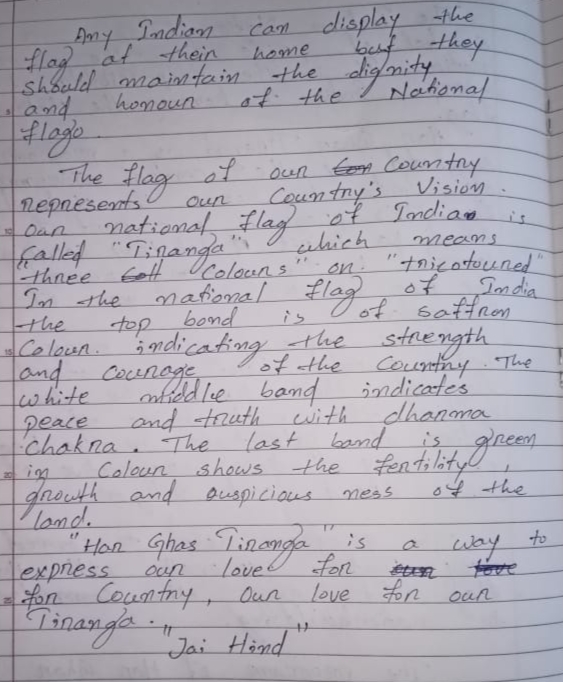 Any Indian can display the
flag at their home but they
should maintain the dignity
and honour of the National
flago.
The flag of our Country
represents our Country's Vision.
Our national flag of India is
called "Tiranga", which means
"three Colours" or "tricoloured"
In the national flag of India
the top band is of saffron
Colour. indicating the strength
and courage of the Country. The
white middle band indicates
peace and truth with dharma
Chakra. The last band is green
in Colour shows the fertility,
growth and auspicious ness of the
land.
"Har Ghar Tiranga" is a way to
express our love for
for Country, Our love for our
Tiranga.
"Jai Hind"